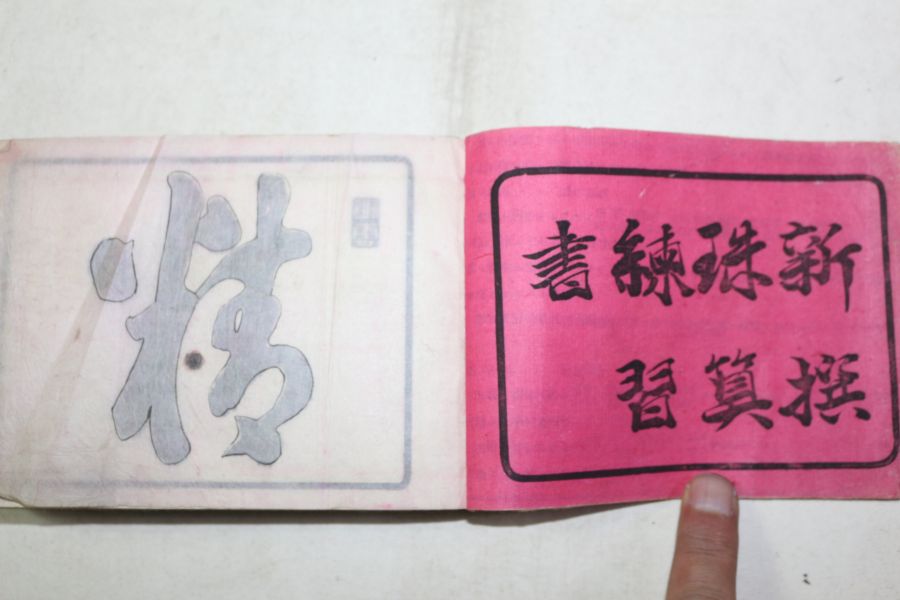 新撰
珠算
練習
書
精